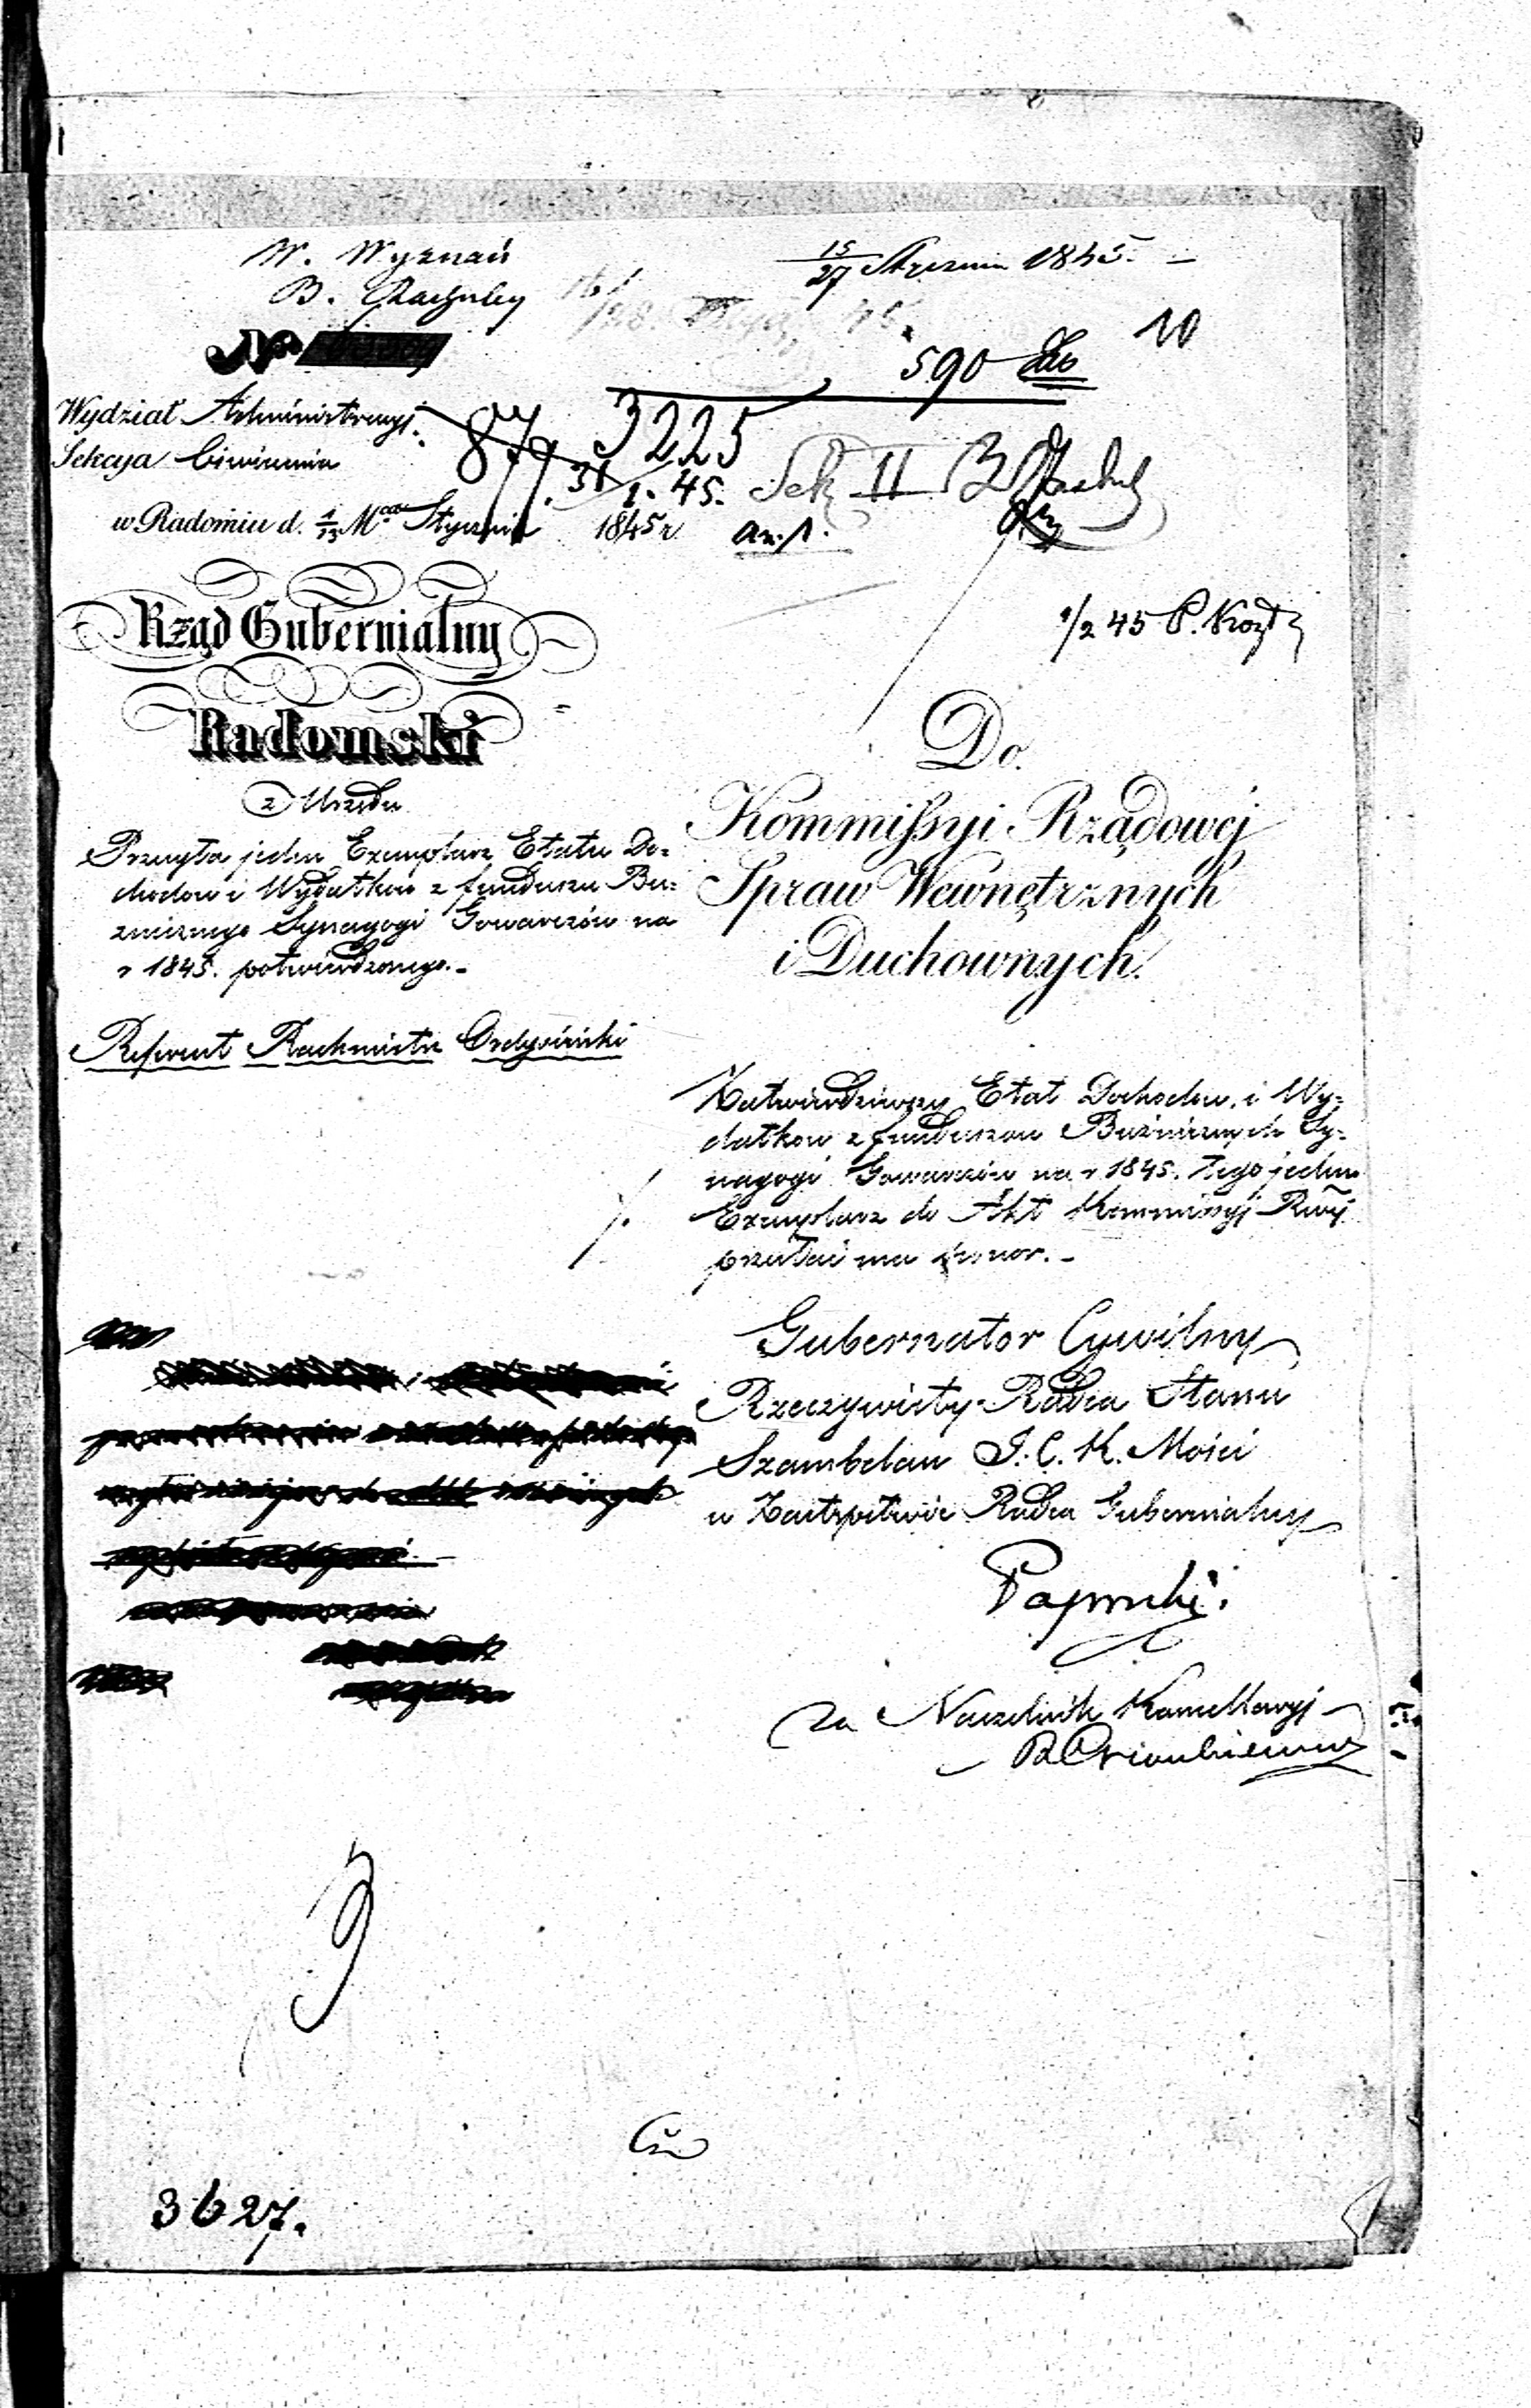 W. Wyznań
B. Rachuby
15/27 Stycznia 1845. –
No
590
10
Wydział Administracyj:
Sekcya
87
3225
31/1. 45. Sek II B
w Radomiu d. 1/13 Mca Stycznia 1845 r
an. 1.
1/2 45 P.
Rząd Gubernialny
Radomski
z Urzędu
Przesyła jeden Exemplarz Etatu Do=
chodow i Wydatkow z funduszu Bu=
znicznego Synagogi Gowarczów na
r 1845. potwierdzonego.–
Referent Rachmistrz
Do.
Kommissyi Rządowej
Spraw Wewnętrznych
i Duchownych.
Zatwierdziwszy Etat Dochodow i Wy=
datkow z funduszow Buźniczych Sy=
nagogi Gowarczów na r 1845. tego jeden
Exemplarz do Akt Kommissyj Rwéj
przesłać ma honor.–
Gubernator Cywilny
Rzeczywisty Radca Stanu
Szambelan J. C. K. Mości
w Zastępstwie Radca Gubernialny
Paprocki.
Za Naczelnik Kancellaryj
9
3627.